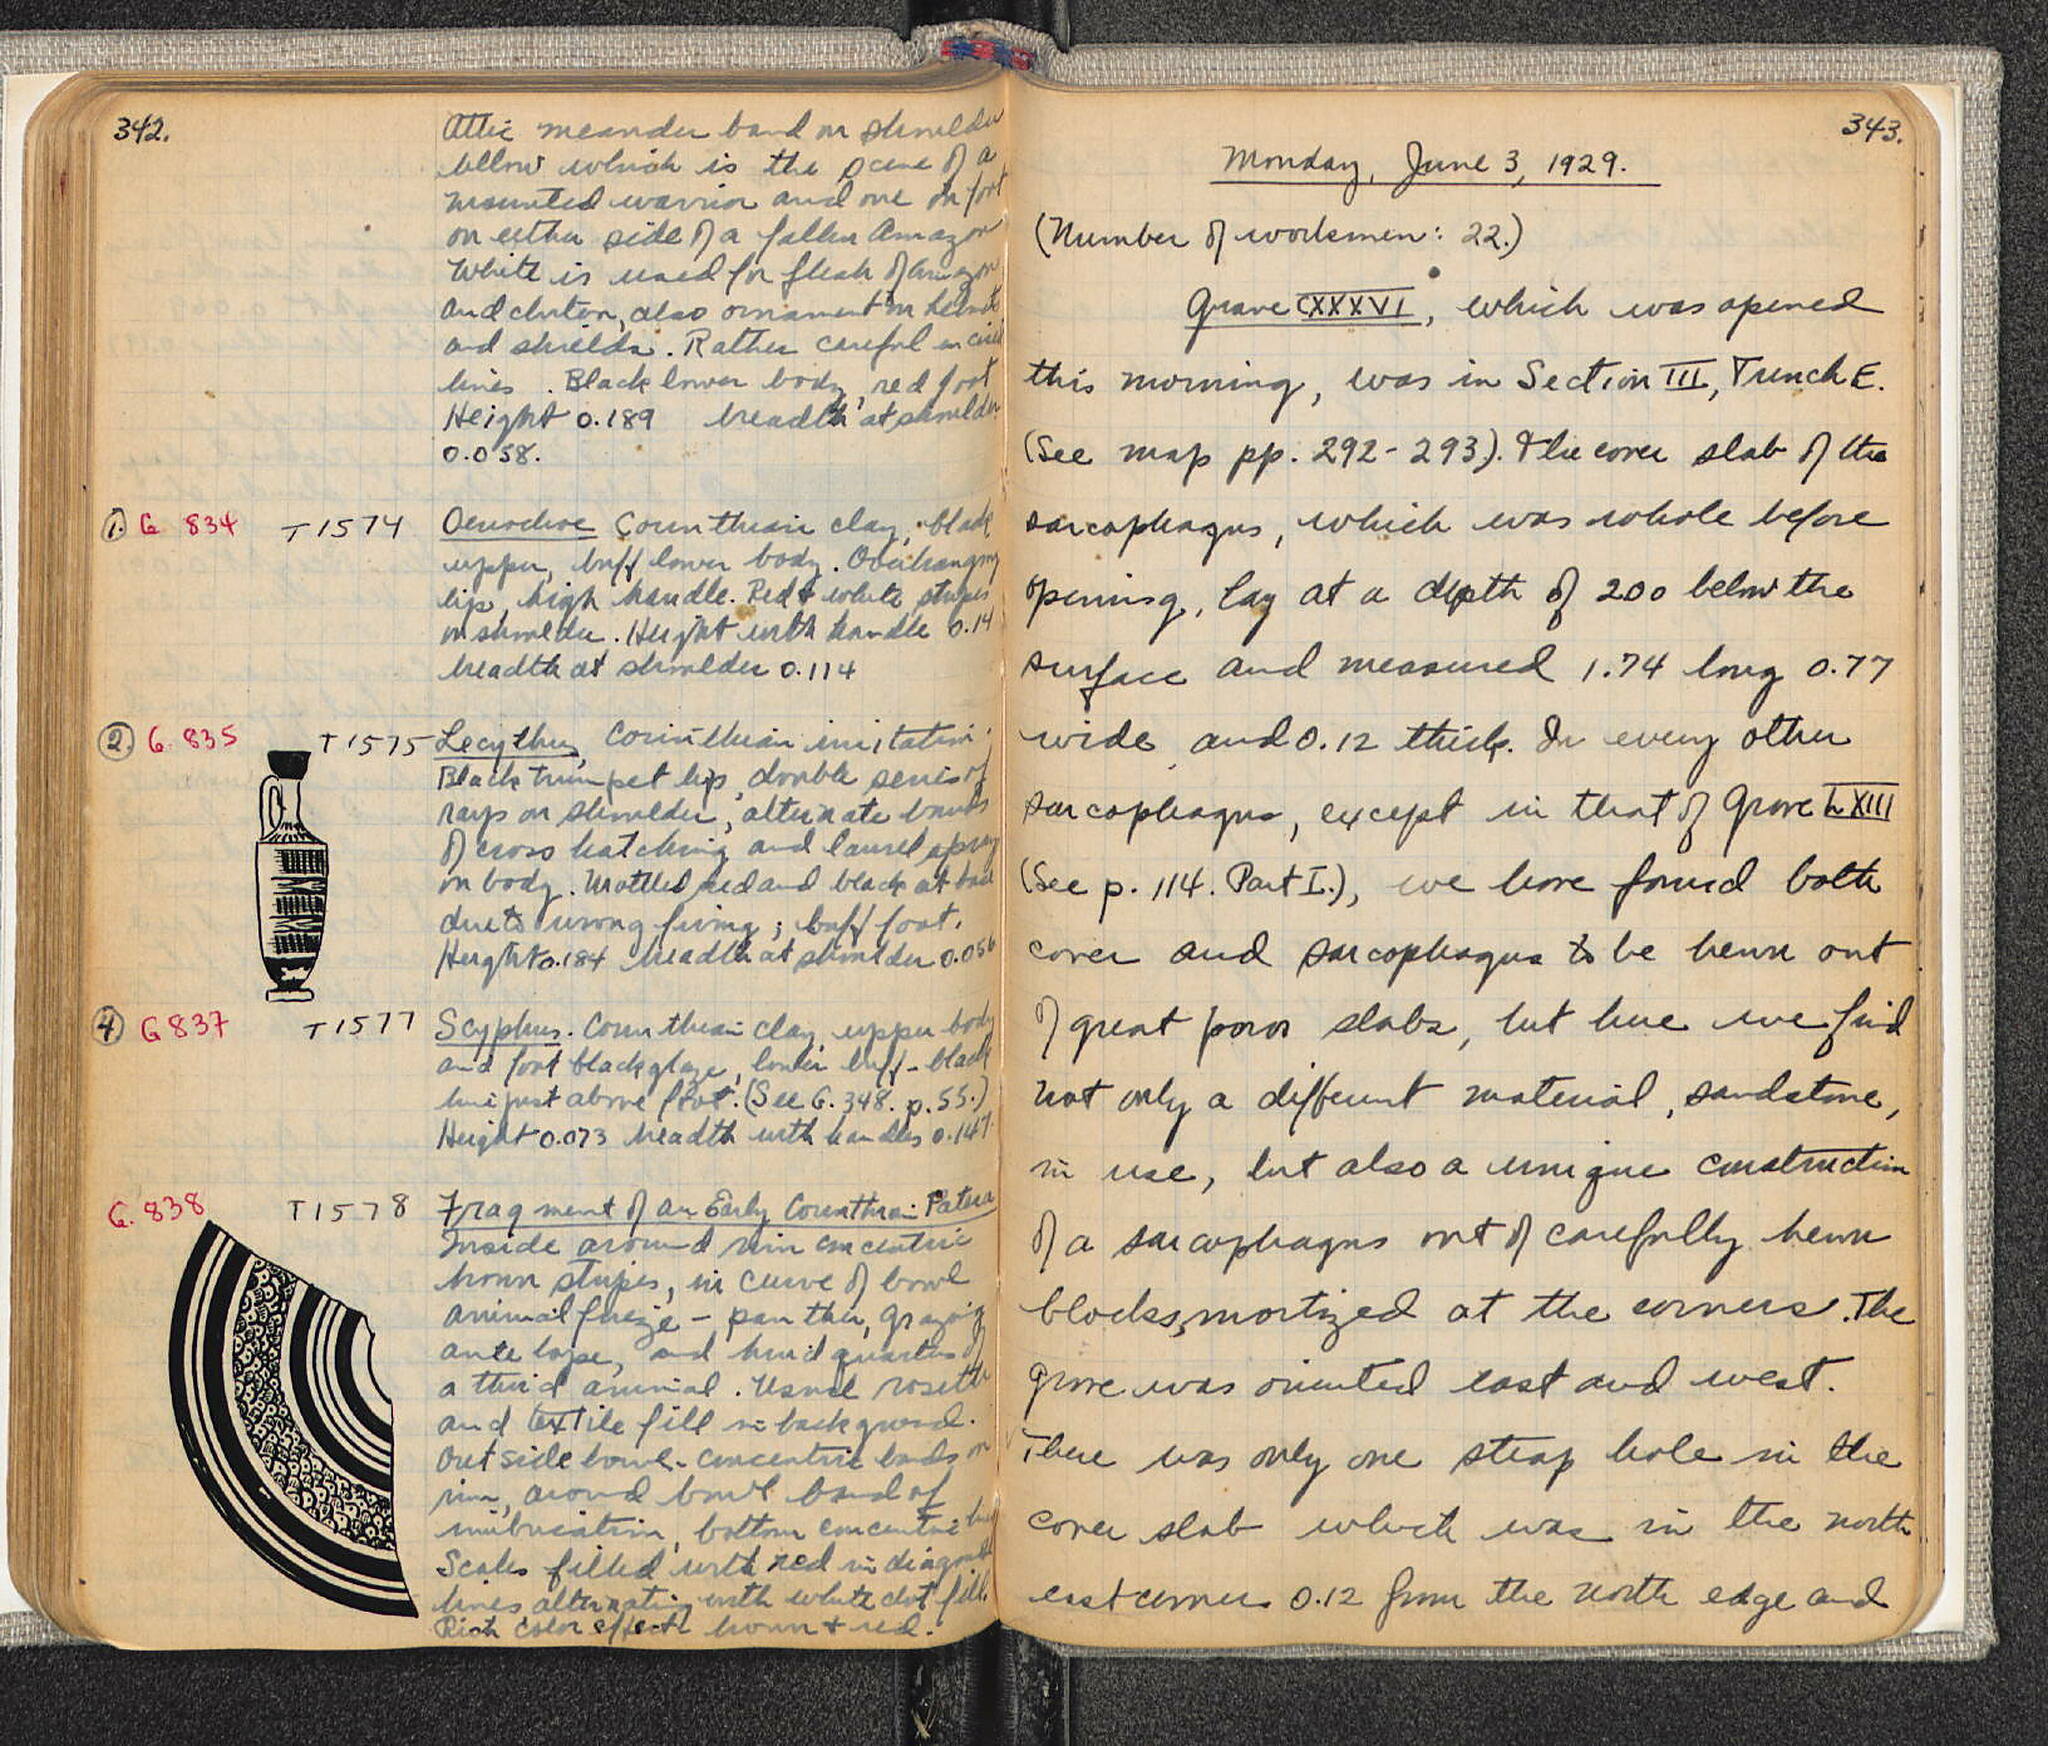 342.
Attic meander band on shoulder
below which is the scene of a
mounted warrior and one on foot
on either side of a fallen Amazon
White is used for flesh of Amazon
and chiton, also ornament on helmets
and shields. Rather careful incised
lines. Black lower body, red foot
Height 0.189 breadth at shoulder
0.058.
1. G 834 T 1574 Oenochoe Corinthian clay, black
upper, buff lower body. Overhanging
lip, high handle. Red & white stripes
on shoulder. Height with handle 0.14
breadth at shoulder 0.114
2. G. 835 T 1575 Lecythus, Corinthian imitation.
Black trumpet lip, double series of
rays on shoulder, alternate bands
of cross hatching and laurel spray
on body. Mottled red and black at base
due to wrong firing; buff foot.
Height 0.184 breadth at shoulder 0.056
4. G 837 T 1577 Scyphus. Corinthian clay, upper body
and foot black glaze, lower buff - black
line just above foot. (See G. 348. p. 55.)
Height 0.073 breadth with handles 0.147.
G. 838 T 1578 Fragment of an Early Corinthian Patera
Inside around rim concentric
brown stripes, in curve of bowl
animal frieze - panther, grazing
antelope, and hind quarters of
a third animal. Usual rosette
and textile fill in background.
Outside bowl - concentric bands on
rim, around bowl band of
imbrication, bottom concentric
Scales filled with red in diagonal
lines alternating with white dot fill.
Rich color effect brown & red.
343.
Monday, June 3, 1929.
(Number of workmen: 22.)
Grave CXXXVI, which was opened
this morning, was in Section III, Trench E.
(See map pp. 292-293). The cover slab of the
sarcophagus, which was whole before
opening, lay at a depth of 2.00 below the
surface and measured 1.74 long 0.77
wide and 0.12 thick. In every other
sarcophagus, except in that of Grave LXIII
(See p. 114. Part I.), we have found both
cover and sarcophagus to be hewn out
of great poros slabs, but here we find
not only a different material, sandstone,
in use, but also a unique construction
of a sarcophagus out of carefully hewn
blocks, mortized at the corners. The
grave was oriented east and west.
There was only one strap hole in the
cover slab which was in the north
east corner 0.12 from the north edge and